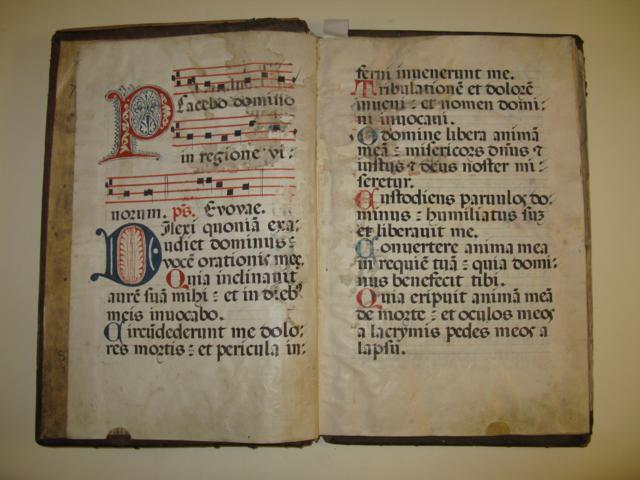 Placebo domino
in regione vi:
uorum. ps. Evovae.
Dilexi quoniã exa:
udiet dominus:
vocẽ orationis meę.
Quia inclinavit
aurẽ suã mihi: et in dieb9
meis invocabo.
Circũdederunt me dolo:
res mortis: et pericula in:
ferni invenerunt me.
Tribulationẽ et dolorẽ
inveni: et nomen domi:
ni invocavi.
O domine libera animã
meã: misericors dñus ⁊
iustus ⁊ deus noster mi:
seretur.
Custodiens parvulos do:
minus: humiliatus suz
et liberavit me.
Convertere anima mea
in requiẽ tuã: quia domi:
nus benefecit tibi.
Quia eripuit animã meã
de morte: et oculos meos
a lacrymis pedes meos a
lapsu.